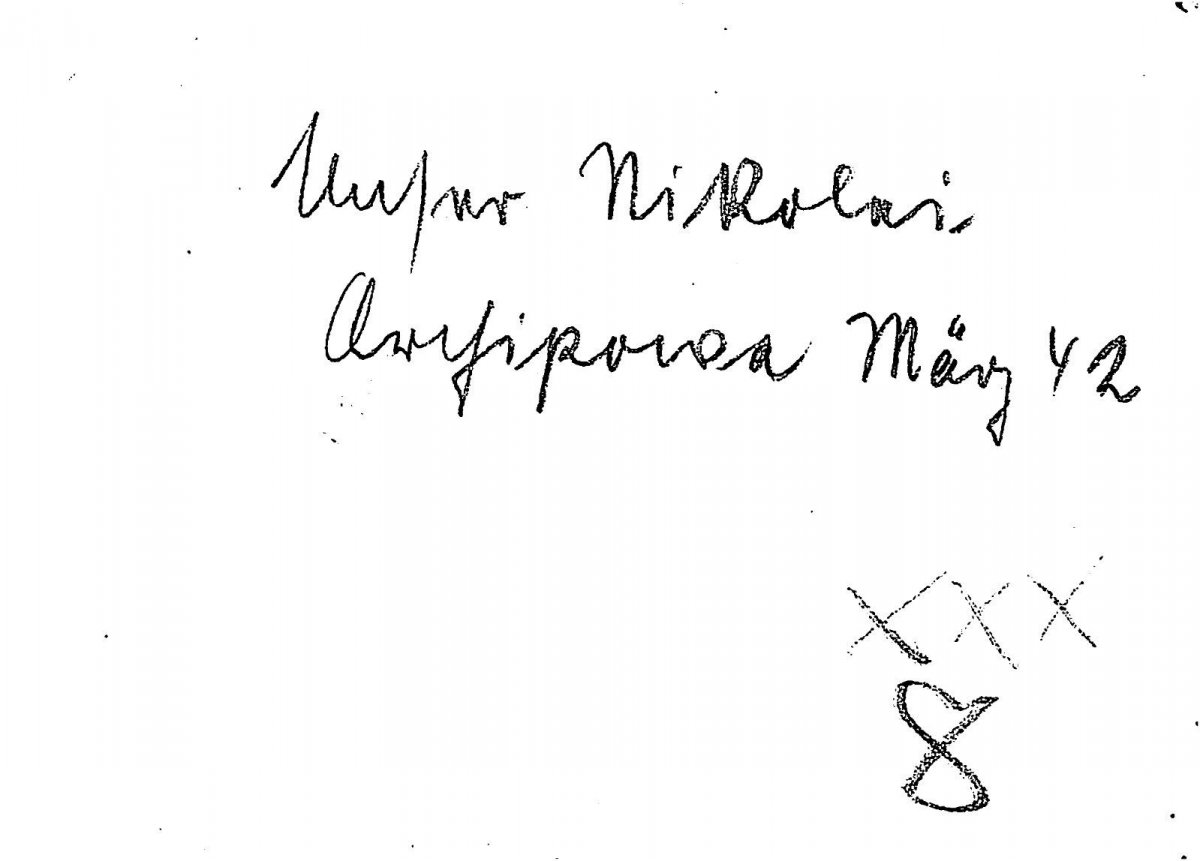 Unser Nikolai
Archipowa März 42
XXX
8